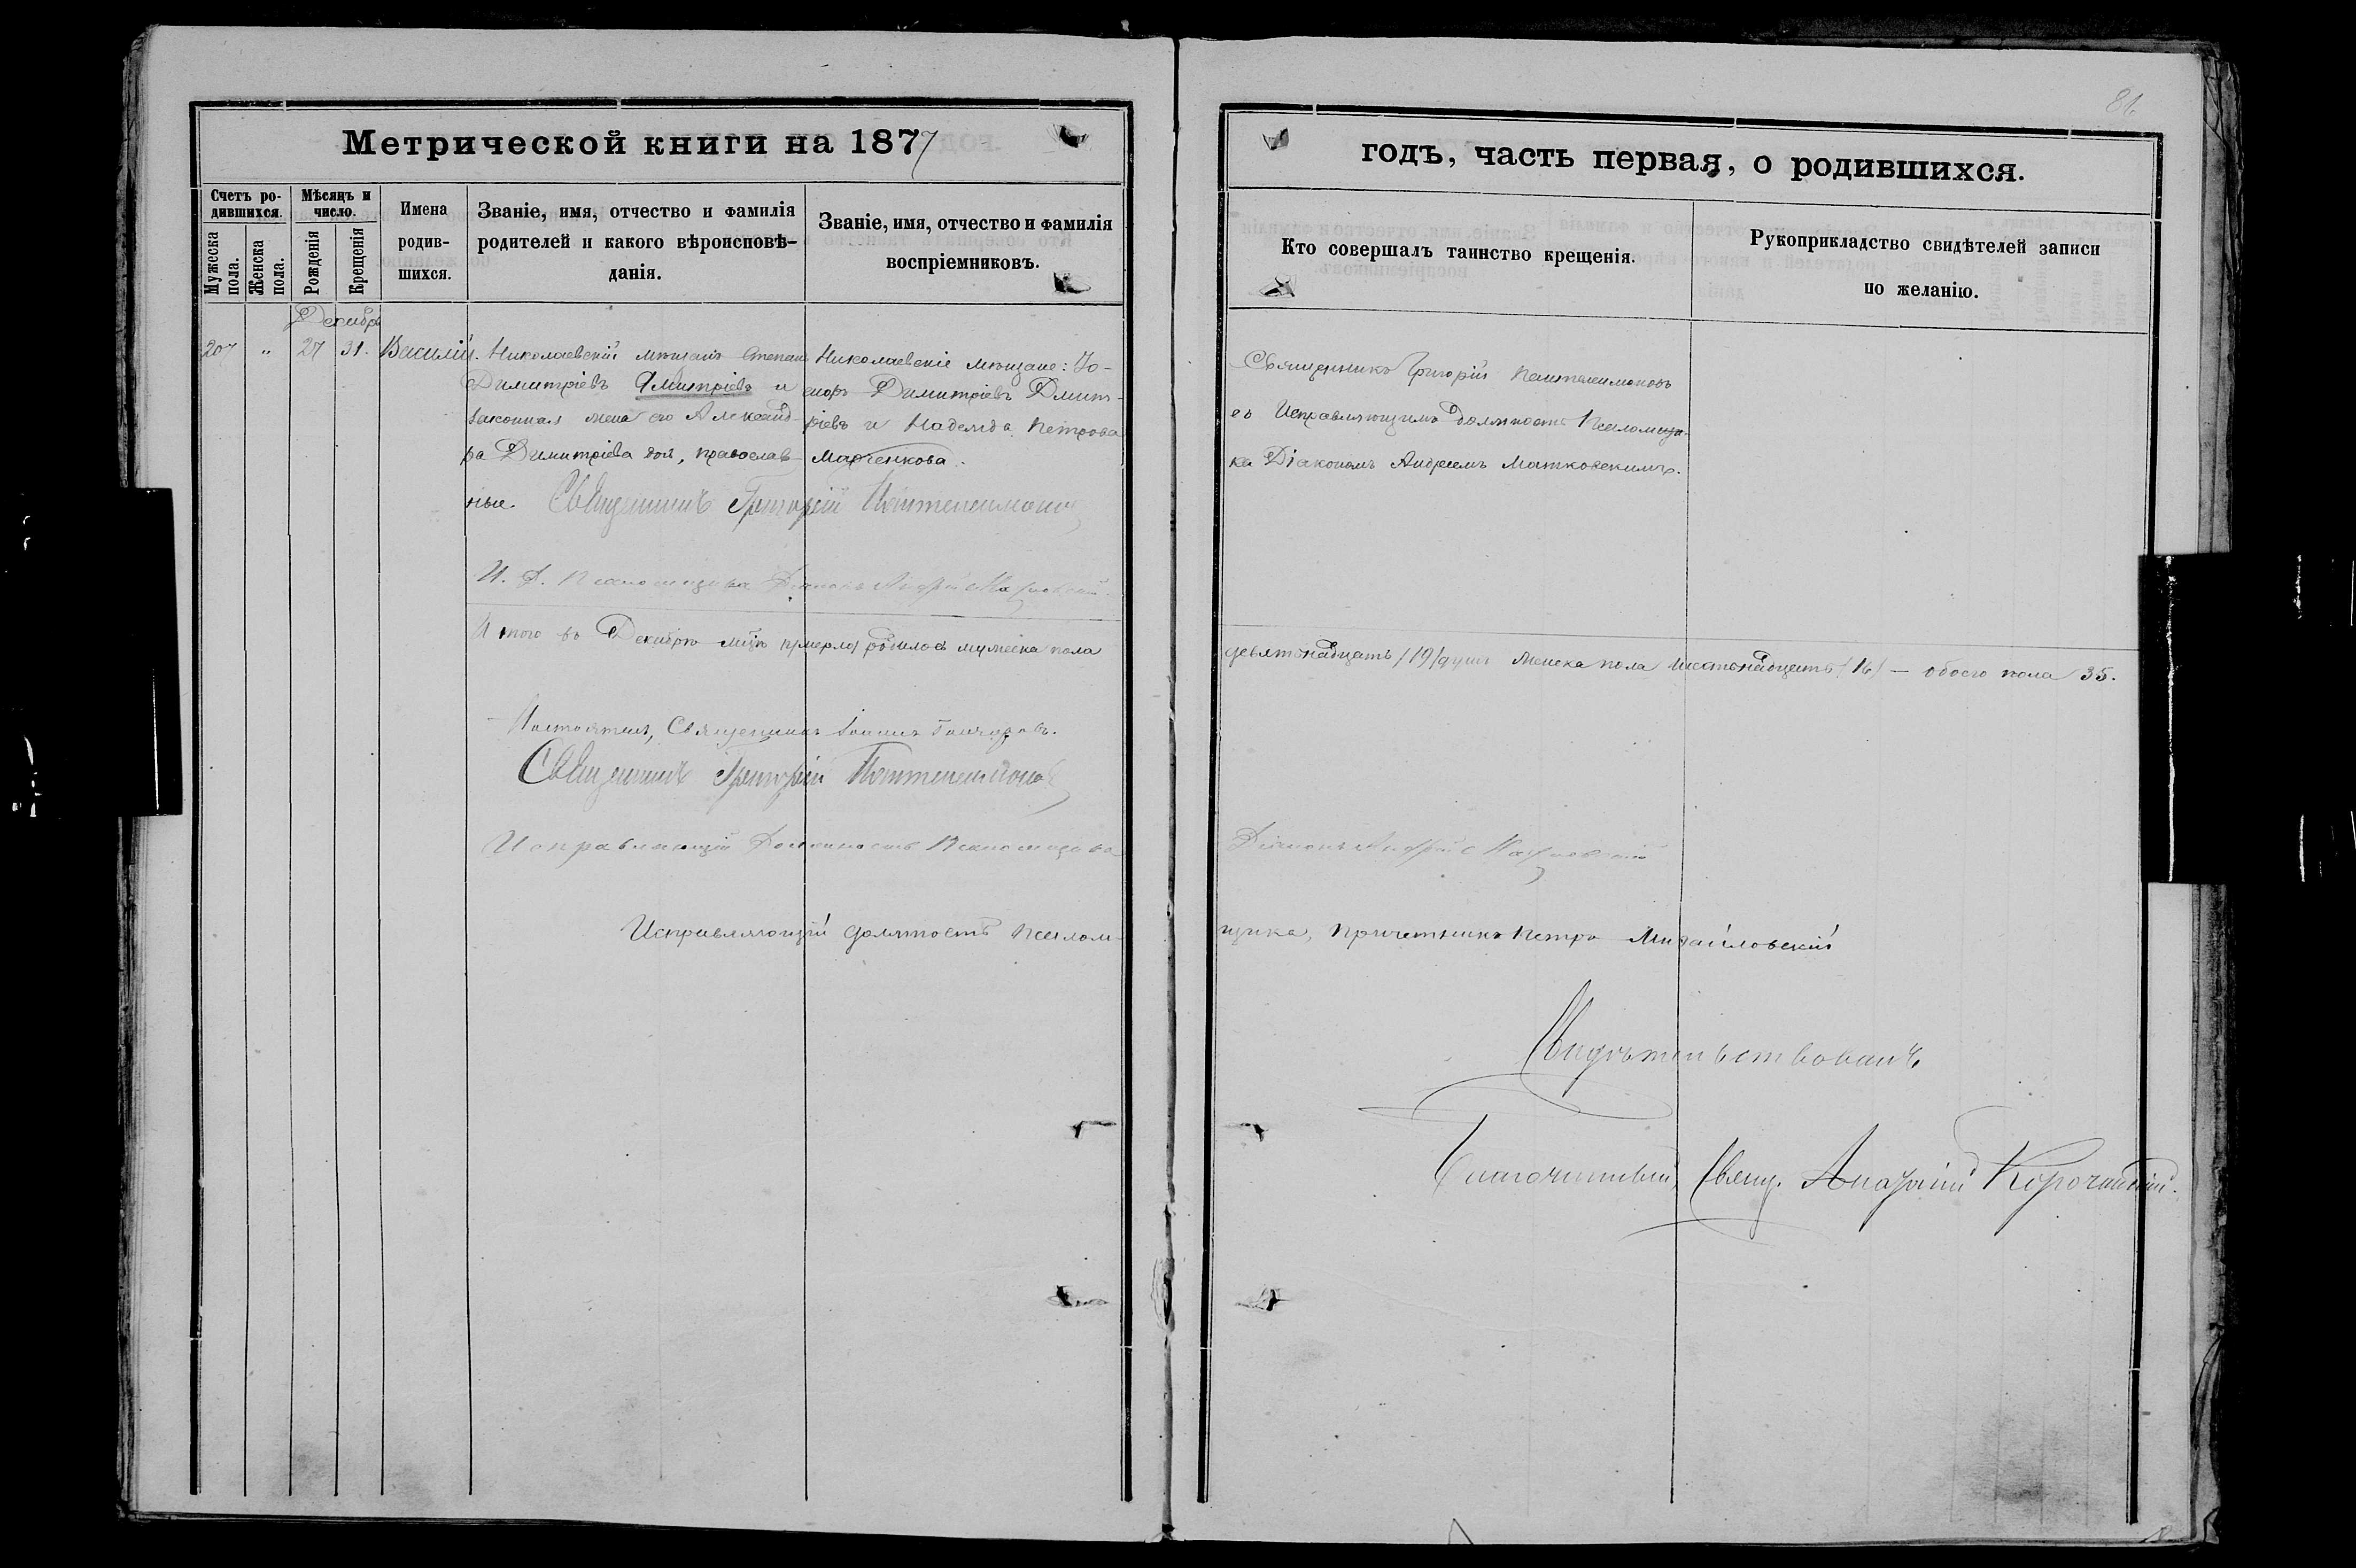 81.
Метрической книги на 1877
годъ, часть первая, о родившихся.
Счетъ ро-
дившихся.
Мужеска
пола.
Женска
пола.
Мѣсяцъ и
число.
Рожденія
Крещенія
Имена
родив-
шихся.
Званіе, имя, отчество и фамилія
родителей и какого вѣроисповѣ-
данія.
Званіе, имя, отчество и фамилія
воспріемниковъ.
Кто совершалъ таинство крещенія.
Рукоприкладство свидѣтелей записи
по желанію.
Декабрь
207 " 27 31. Василій.
Николаевскій мѣщанъ Степанъ
Димитріевъ Дмитріевъ и
законная жена его Александ-
ра Димитріева доя, православ-
ные.
Николаевскіе мѣщане:
Димитріевъ Дмит-
ріевъ и Надежда Петрова
Марченкова.
Священникъ Григорій Пантелеимоновъ
съ Исправляющимъ должность Псаломщи-
ка Діакономъ Андреемъ
Священникъ Григорій Пантелеимоновъ
И. д. Псаломщика Діаконъ Андрей
Итого въ Декабрѣ родилось мужеска пола
девятьнадцать (19) душъ женска пола шестьнадцать (16) — обоего пола 35.
Настоятель, Священникъ Іоаннъ Гончаровъ.
Священникъ Григорій Пантелеимоновъ
Исправляющій Должность Псаломщика
Діаконъ Андрей
Исправляющій должность Псалом-
щика, Причетникъ Петръ Михайловскій
Свидѣтельствовалъ
Благочинный, Свящ.